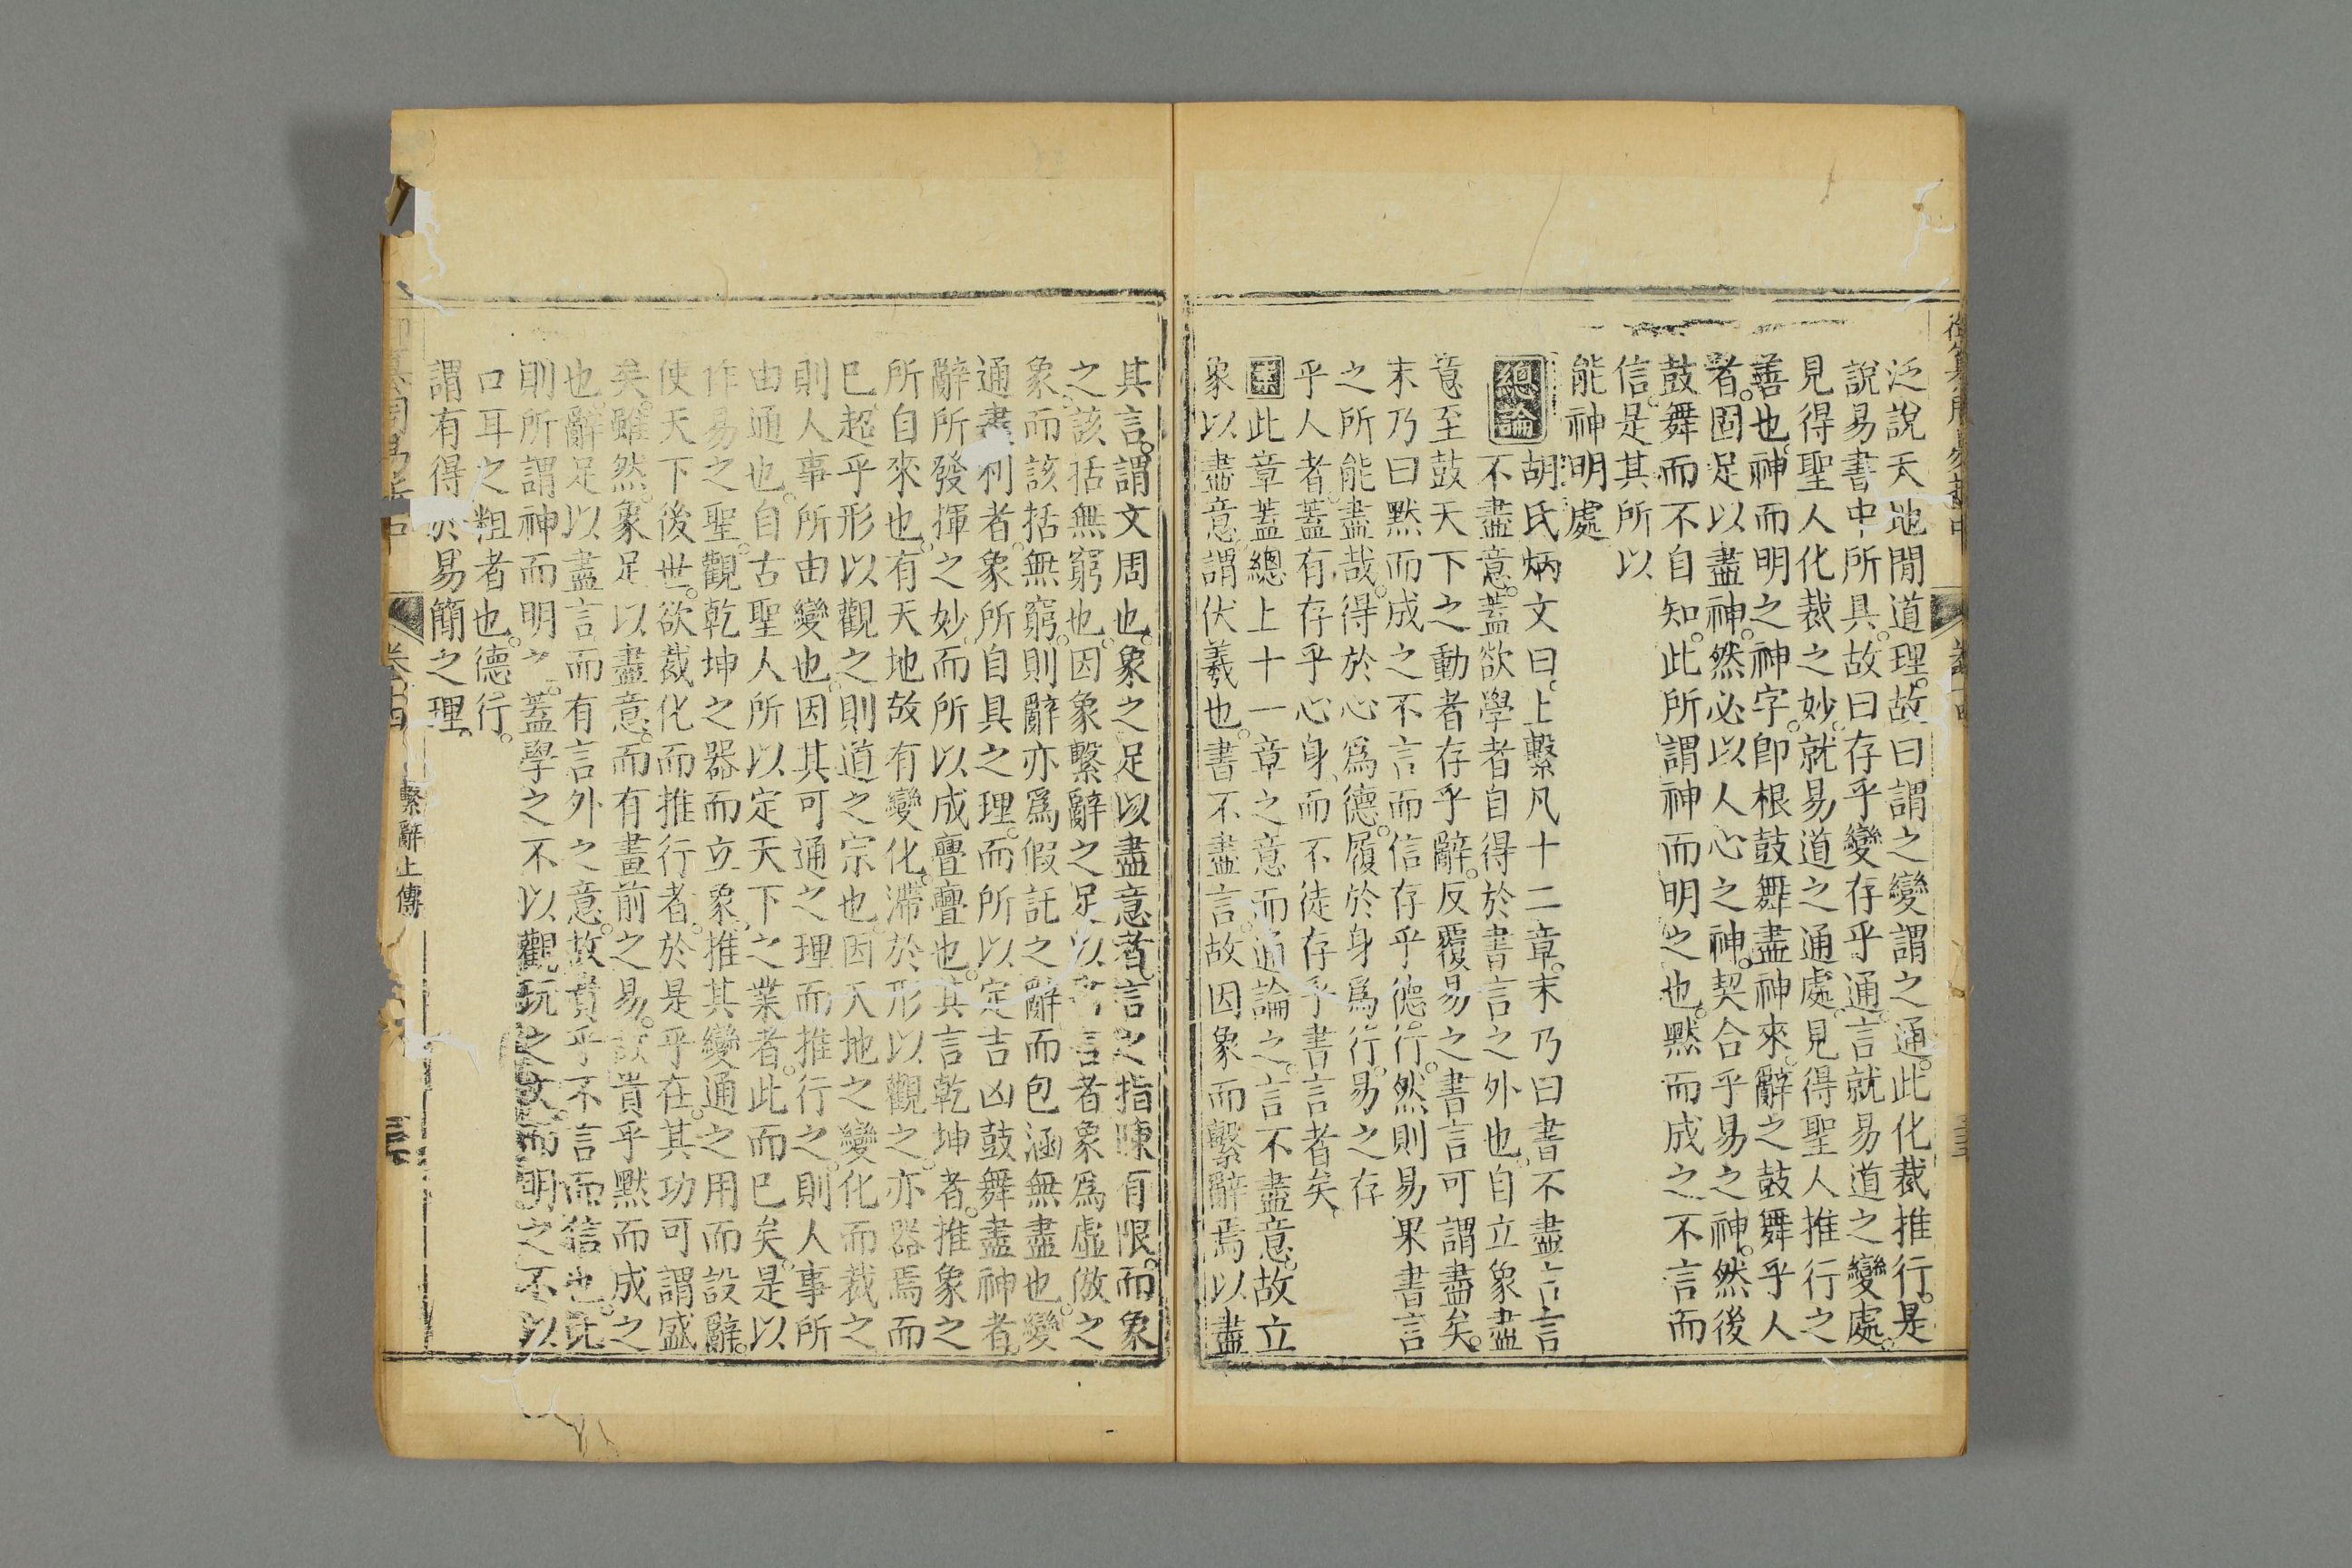 泛說天地閒道理。故曰謂之變謂之通。此化裁推行。是
說易書中所具。故曰存乎變存乎通。言就易道之變處。
見得聖人化裁之妙。就易道之通處。見得聖人推行之
善也。神而明之神字。卽根鼓舞盡神來。辭之鼓舞乎人
者。固足以盡神。然必以人心之神。契合乎易之神。然後
鼓舞而不自知。此所謂神而明之也。默而成之不言而
信。是其所以
能神明處。
總論 胡氏炳文曰。上繫凡十二章。末乃曰書不盡言言
不盡意。蓋欲學者自得於書言之外也。自立象盡
意至鼓天下之動者存乎辭。反覆易之書言可謂盡矣。
末乃曰默而成之不言而信存乎德行。然則易果書言
之所能盡哉。得於心爲德。履於身爲行。易之存
乎人者。蓋有存乎心身。而不徒存乎書言者矣。
案此章蓋總上十一章之意而通論之。言不盡意。故立
象以盡意。謂伏羲也。書不盡言。故因象而繫辭焉以盡
其言。謂文周也。象之足以盡意者。言之指陳有限。而象
之該括無窮也。因象繫辭之足以盡言者。象爲虛倣之
象。而該括無窮。則辭亦爲假託之辭而包涵無盡也。變
通盡利者。象所自具之理。而所以定吉凶鼓舞盡神者。
辭所發揮之妙。而所以成亹亹也。其言乾坤者。推象之
所自來也。有天地故有變化。滯於形以觀之。亦器焉而
已。超乎形以觀之。則道之宗也。因天地之變化而裁之
則人事所由變也。因其可通之理而推行之。則人事所
由通也。自古聖人所以定天下之業者。此而已矣。是以
作易之聖。觀乾坤之器而立象。推其變通之用而設辭。
使天下後世。欲裁化而推行者。於是乎在。其功可謂盛
矣。雖然。象足以盡意。而有畫前之易。故貴乎默而成之
也。辭足以盡言。而有言外之意。故貴乎不言而信也。此
則所謂神而明之。蓋學之不以觀玩之文。而明之不以
口耳之粗者也。德行。
謂有得於易簡之理。
卷十四
繫辭上傳